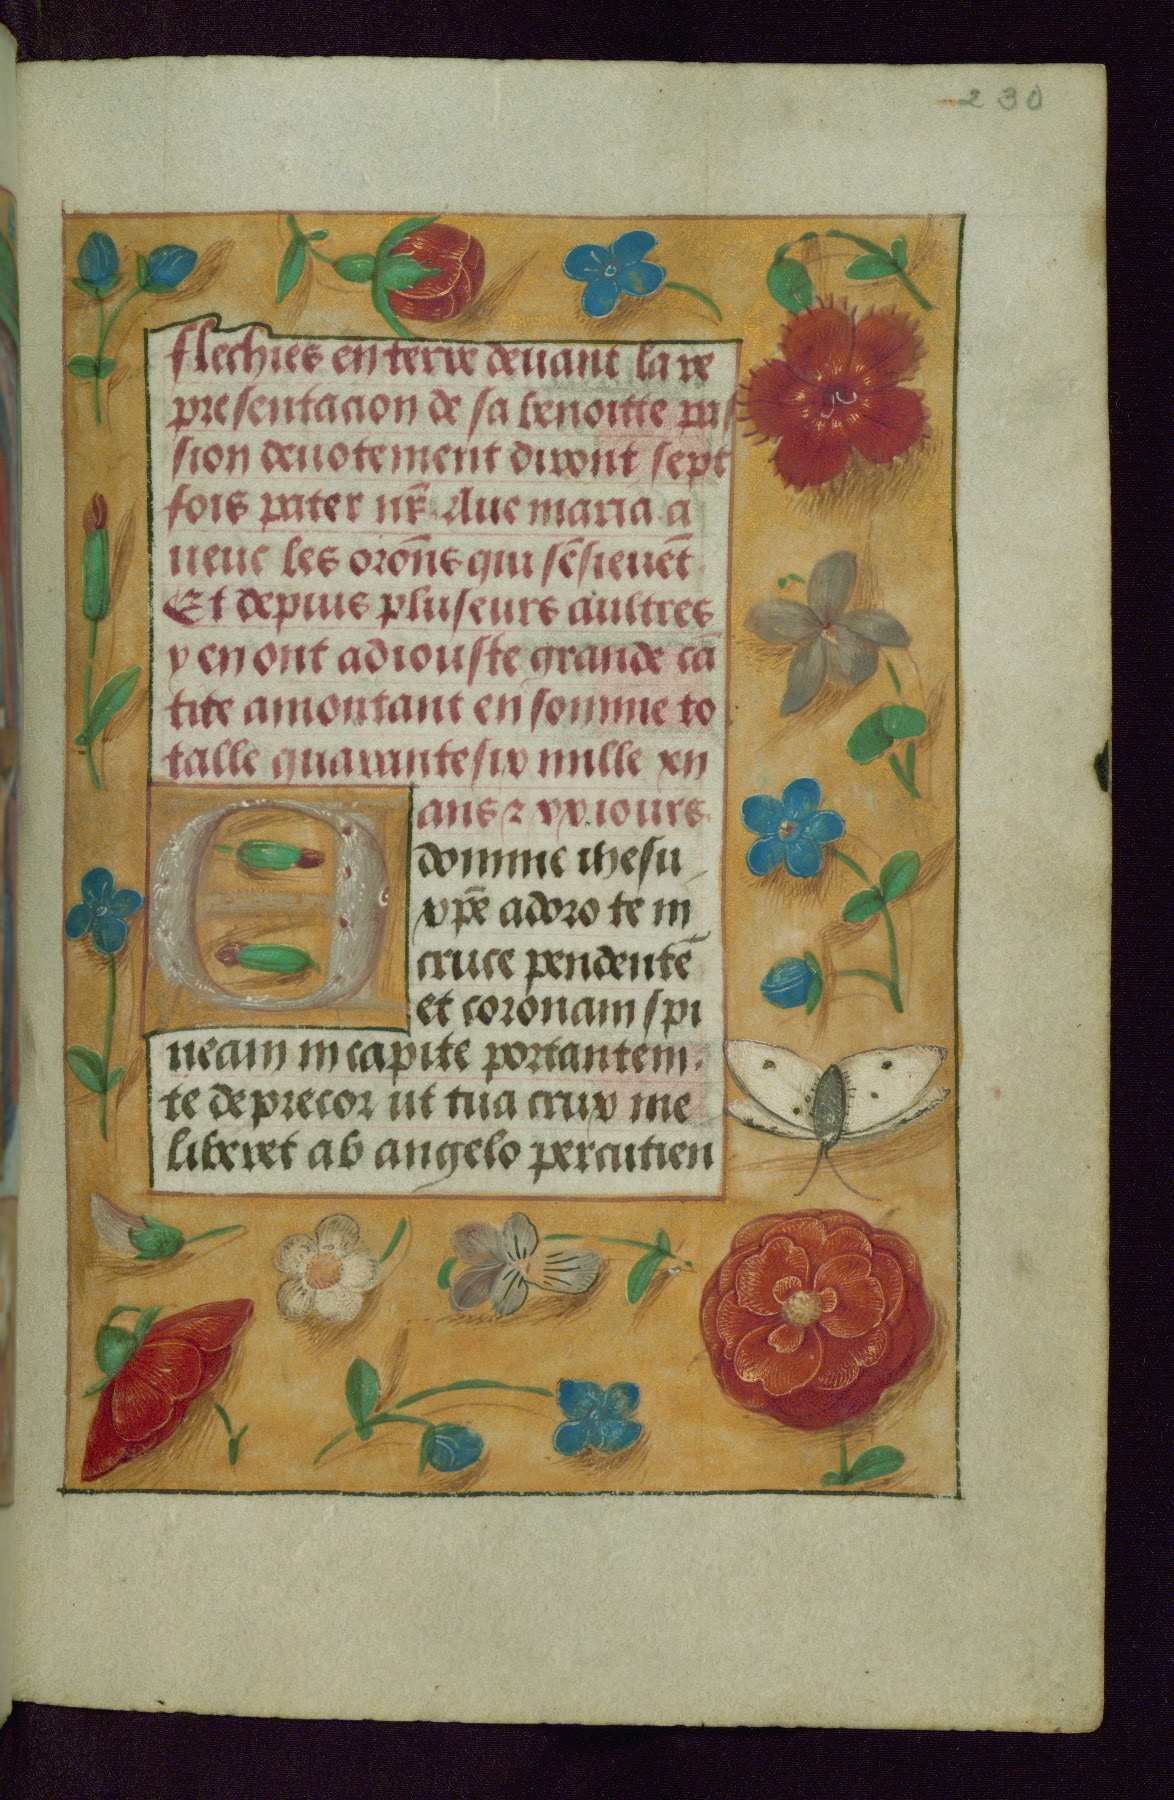 230
flechies en terre deuant la re
presentacion de sa benoitte pas
sion deuotement diront sept
fois pater nr̄. Aue maria a
ueuc les orōns qui sēsieuēt.
Et depius pluseurs aultres
y en ont adiouste grande cā
tite amontant en somme to
talle quarantesix mille xii
ans ⁊ xx. iours.
O domine ihesu
xpē adoro te in
cruce pendentē
et coronam spi
neam in capite portantem.
te deprecor ut tua crux me
liberet ab angelo percutien